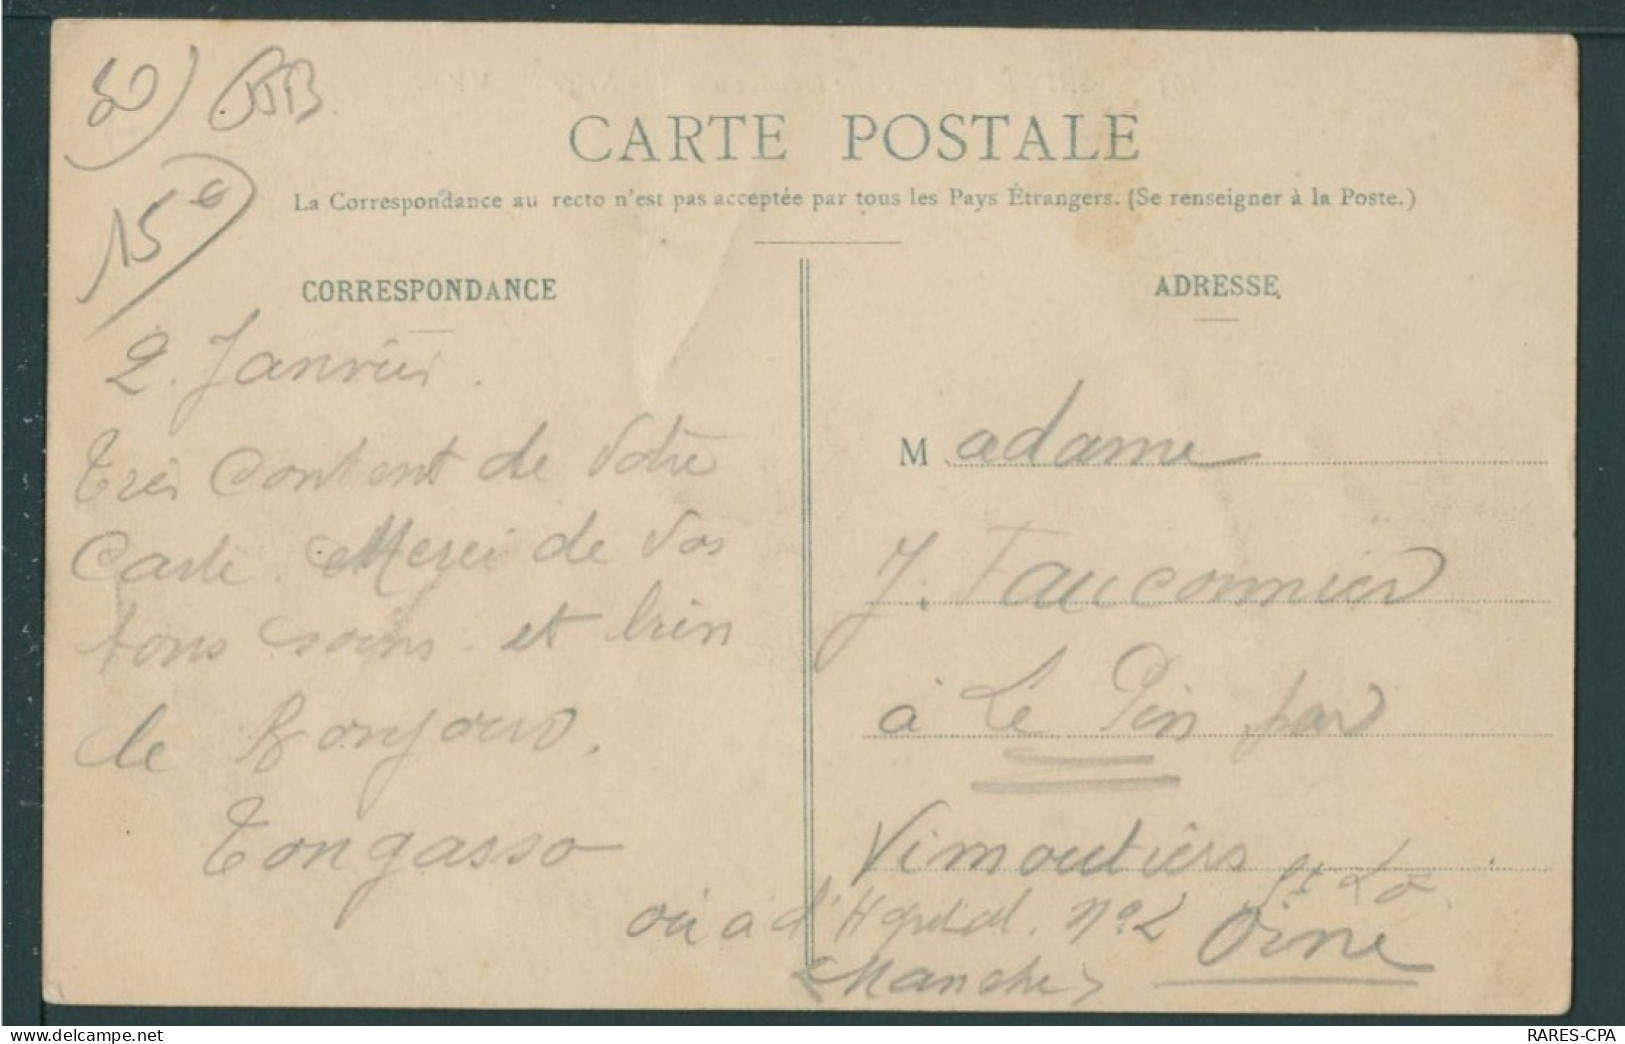 50)
15€
CARTE POSTALE
La Correspondance au recto n'est pas acceptée par tous les Pays Étrangers. (Se renseigner à la Poste.)
CORRESPONDANCE
2. Janvier.
Très content de votre
Carte. Merci de vos
bons soins. et bien
le Bonjour.
Tongasso
ADRESSE
Madame
J. Fauconnier
à Le Pin par
Vimoutiers
ou a d'Hopital. No. 2 St Lo.
Manche
Orne
RARES-CPA